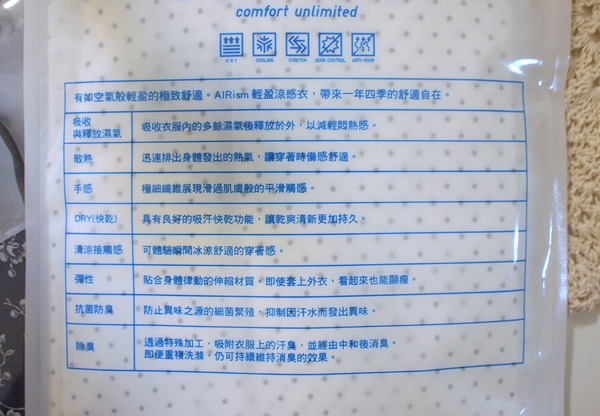 comfort unlimited
DRY COOLING STRETCH ODOR CONTROL ANTI-ODOR
有如空氣般輕盈的極致舒適。AIRism 輕盈涼感衣，帶來一年四季的舒適自在。
吸收
與釋放濕氣 吸收衣服內的多餘濕氣後釋放於外，以減輕悶熱感。
散熱 迅速排出身體發出的熱氣，讓穿著時備感舒適。
手感 極細纖維展現滑過肌膚般的平滑觸感。
DRY(快乾) 具有良好的吸汗快乾功能，讓乾爽清新更加持久。
清涼接觸感 可體驗瞬間冰涼舒適的穿著感。
彈性 貼合身體律動的伸縮材質，即使套上外衣，看起來也能顯瘦。
抗菌防臭 防止異味之源的細菌繁殖，抑制因汗水而發出異味。
除臭 透過特殊加工，吸附衣服上的汗臭，並經由中和後消臭。
即便重複洗滌，仍可持續維持消臭的效果。